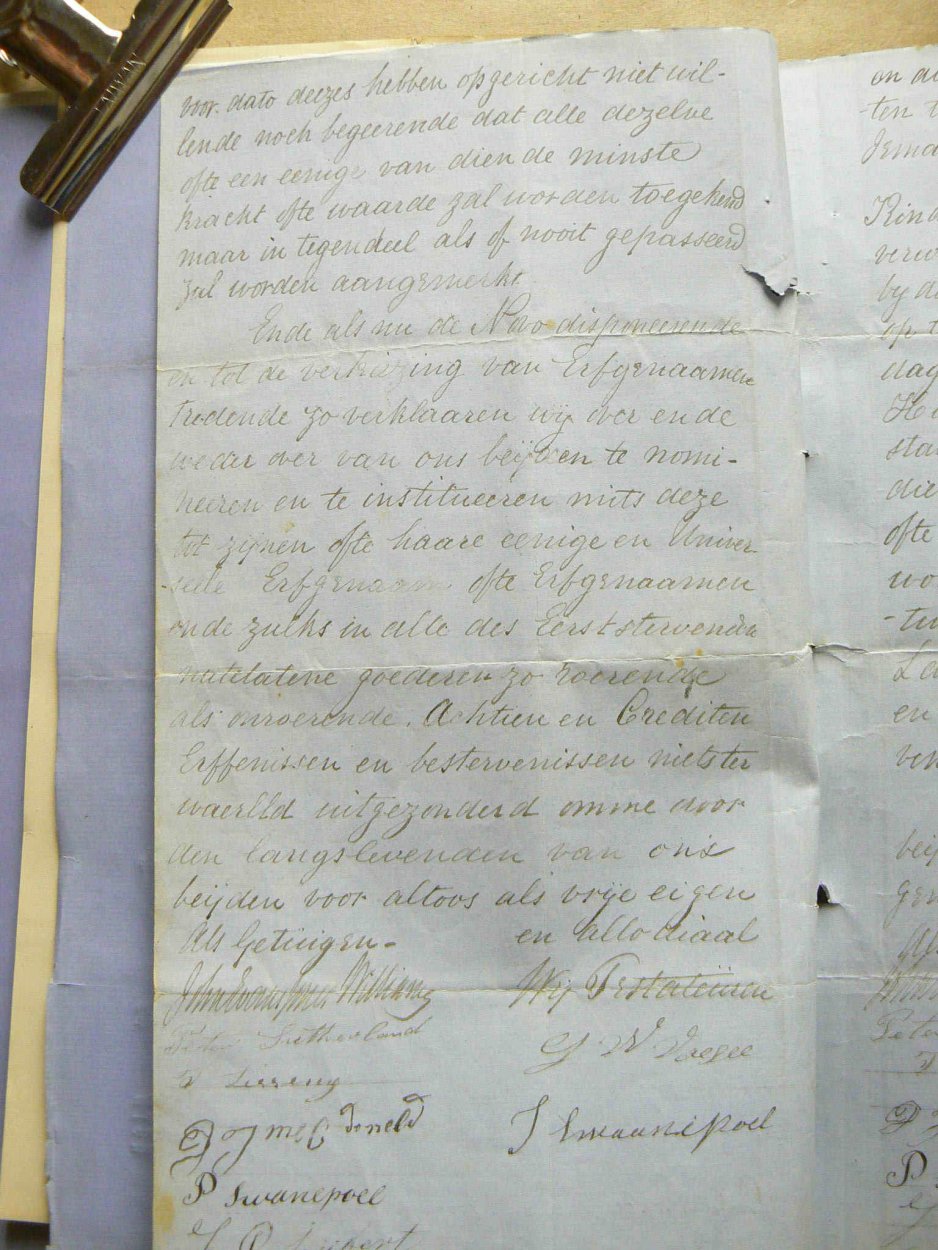 TAIWAN
voor dato deezes hebben opgericht niet wil-
lende noch begeerende dat alle dezelve
ofte een eenige van dien de minste
kracht ofte waarde zal worden toegekend
maar in tegendeel als of nooit gepasseerd
zal worden aangemerkt
Ende als nu de Novo disponeerende
en tot de verkiezing van Erfgenaamen
tredende zo verklaaren wij over ende
weder over van ons beijden te nomi-
neeren en te institueeren mits deze
tot zijnen ofte haare eenige en Univer-
seele Erfgenaam ofte Erfgenaamen
ende zulks in alle des Eerststervenden
natelatene goederen zo roerende
als onroerende. Achtien en Crediten
Erffenissen en bestervenissen niets ter
waerlld uitgezonderd omme door
den langslevenden van ons
beijden voor altoos als vrije eigen
Als Getuigen- en allodiaal
Williams Wij Testateuren
Peter Sutherland
G W
J Swaanepoel
P Swanepoel
ten
Kind
dag
die
ofte
en
Peter
P